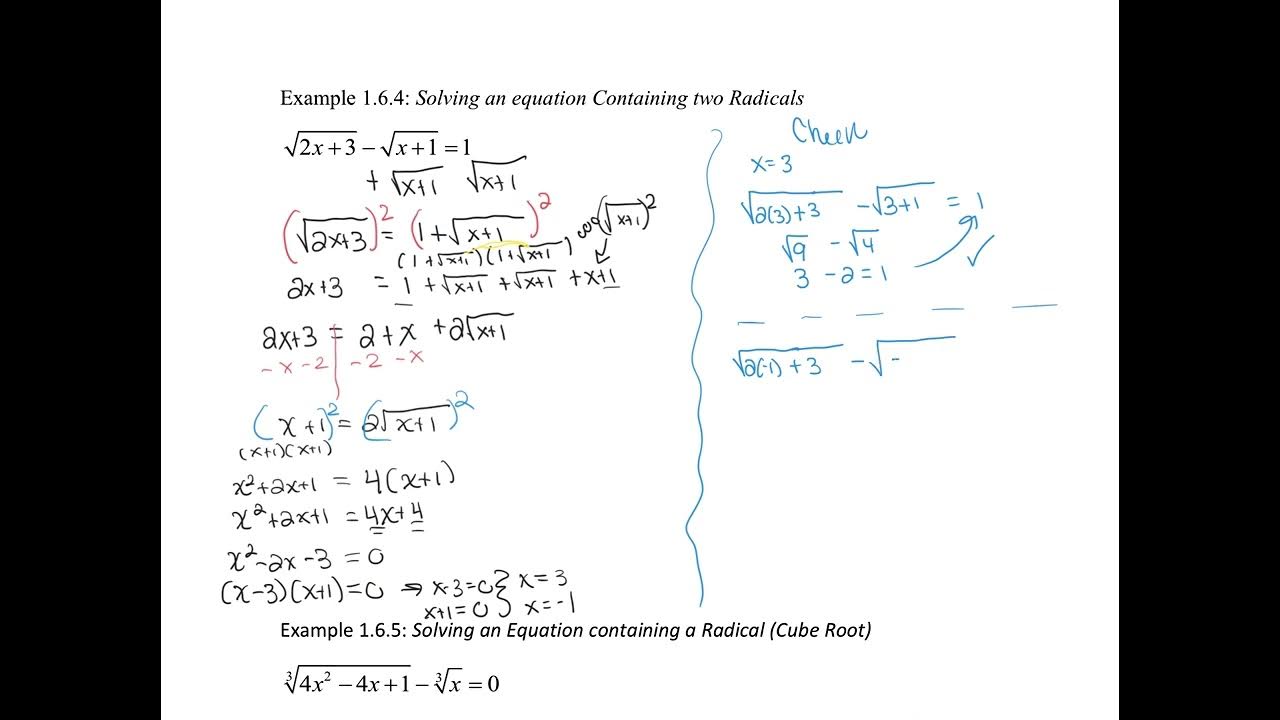 Example 1.6.4: Solving an equation Containing two Radicals
√(2x + 3) − √(x + 1) = 1
+ √(x+1) √(x+1)
(√(2x+3))² = (1 + √(x+1))²
(1 + √(x+1))(1 + √(x+1)) (√(x+1))²
2x+3 = 1 + √(x+1) + √(x+1) + x+1
2x+3 = 2 + x + 2√(x+1)
- x - 2 - 2 - x
(x + 1)² = (2√(x+1))²
(x+1)(x+1)
x²+2x+1 = 4(x+1)
x²+2x+1 = 4x+4
x² - 2x - 3 = 0
(x-3)(x+1) = 0 → x-3=0 } x = 3
x+1=0 } x=-1
Check
x=3
√(2(3)+3) - √(3+1) = 1
√9 - √4
3 - 2 = 1 ✓
√(2(-1) + 3) - √(-
Example 1.6.5: Solving an Equation containing a Radical (Cube Root)
∛(4x² − 4x + 1) − ∛x = 0